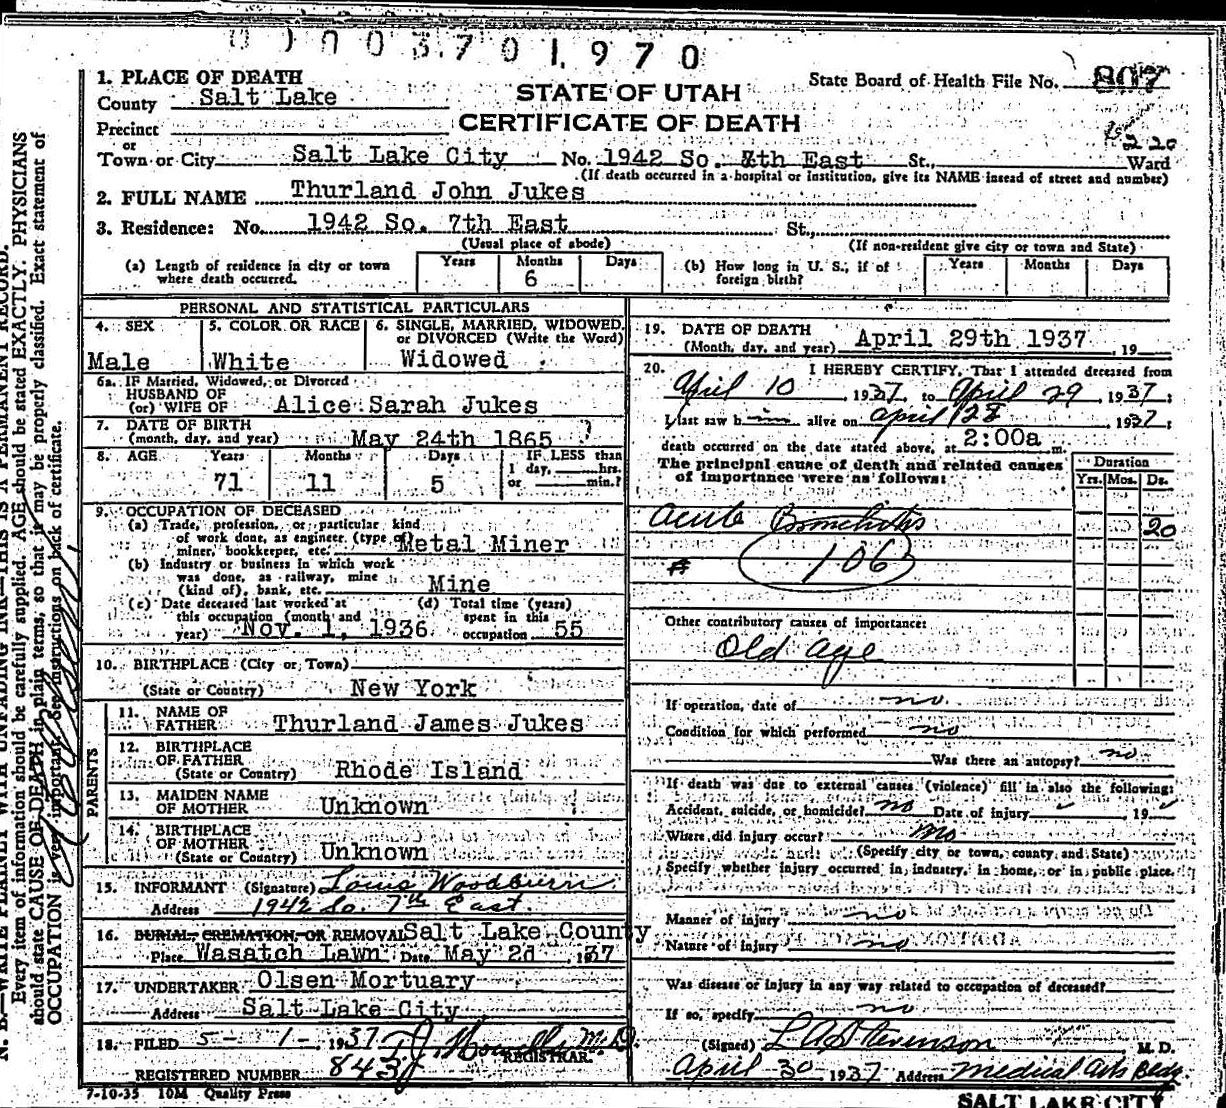 0 0 0 3 7 0 1 9 7 0
1. PLACE OF DEATH
County Salt Lake
Precinct
or
Town or City Salt Lake City No. 1942 So. 7th East St., Ward
(If death occurred in a hospital or institution, give its NAME insead of street and number)
STATE OF UTAH
CERTIFICATE OF DEATH
State Board of Health File No. 807
220
2. FULL NAME Thurland John Jukes
3. Residence: No. 1942 So. 7th East St.,
(Usual place of abode) (If non-resident give city or town and State)
(a) Length of residence in city or town where death occurred. Years Months 6 Days
(b) How long in U. S., if of foreign birth? Years Months Days
PERSONAL AND STATISTICAL PARTICULARS
4. SEX Male
5. COLOR OR RACE White
6. SINGLE, MARRIED, WIDOWED, or DIVORCED (Write the Word) Widowed
6a. IF Married, Widowed, or Divorced
HUSBAND OF
(or) WIFE OF Alice Sarah Jukes
7. DATE OF BIRTH
(month, day, and year) May 24th 1865 ?
8. AGE Years 71 Months 11 Days 5 IF LESS than 1 day, hrs. or min.?
9. OCCUPATION OF DECEASED
(a) Trade, profession, or particular kind
of work done, as engineer (type of)
miner, bookkeeper, etc. Metal Miner
(b) Industry or business in which work
was done, as railway, mine
(kind of), bank, etc. Mine
(c) Date deceased last worked at
this occupation (month and
year) Nov. 1, 1936
(d) Total time (years)
spent in this
occupation 55
10. BIRTHPLACE (City or Town)
(State or Country) New York
PARENTS
11. NAME OF
FATHER Thurland James Jukes
12. BIRTHPLACE
OF FATHER
(State or Country) Rhode Island
13. MAIDEN NAME
OF MOTHER Unknown
14. BIRTHPLACE
OF MOTHER
(State or Country) Unknown
15. INFORMANT (Signature) Louis Woodburn
Address 1942 So. 7th East
16. BURIAL, CREMATION, OR REMOVAL Salt Lake County
Place Wasatch Lawn Date May 2d 1937
17. UNDERTAKER Olsen Mortuary
Address Salt Lake City
18. FILED 5-1-1937 M.D.
REGISTRAR
REGISTERED NUMBER 843
7-10-35 10M Quality Press
19. DATE OF DEATH
(Month, day, and year) April 29th 1937, 19
20. I HEREBY CERTIFY, That I attended deceased from
April 10, 1937, to April 29, 1937;
I last saw him alive on April 28 1937;
death occurred on the date stated above, at 2:00a m.
The principal cause of death and related causes
of importance were as follows:
Duration
Yrs. Mos. Ds.
Acute Bronchitis 20
106
Other contributory causes of importance:
Old age
If operation, date of no
Condition for which performed no
Was there an autopsy? no
If death was due to external causes (violence) fill in also the following:
Accident, suicide, or homicide? no Date of injury 19
Where did injury occur? no
(Specify city or town, county and State)
Specify whether injury occurred in industry, in home, or in public place.
Manner of injury no
Nature of injury no
Was disease or injury in any way related to occupation of deceased?
If so, specify no
(Signed) L A Stevenson M. D.
April 30 1937 Address Medical Arts Bldg.
SALT LAKE CITY
N. B.—WRITE PLAINLY WITH UNFADING INK—THIS IS A PERMANENT RECORD.
Every item of information should be carefully supplied. AGE should be stated EXACTLY. PHYSICIANS
should state CAUSE OF DEATH in plain terms, so that it may be properly classified. Exact statement of
OCCUPATION is very important. See instructions on back of certificate.